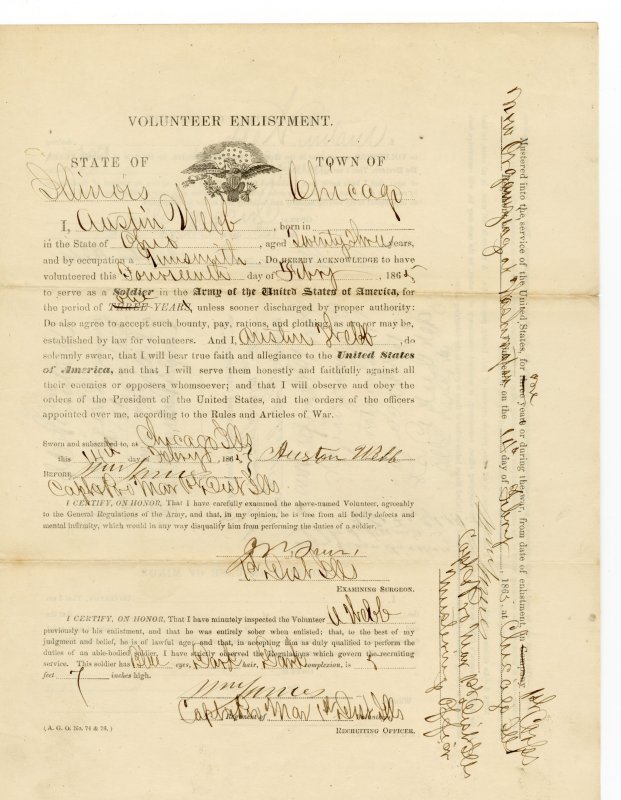 VOLUNTEER ENLISTMENT.
STATE OF TOWN OF
Illinois Chicago
I, Austin Webb, born in
in the State of Ohio, aged Twenty Three years,
and by occupation a Gunsmith. Do HEREBY ACKNOWLEDGE to have
volunteered this Fourteenth day of Feby, 1865
to serve as a Soldier in the Army of the United States of America, for
the period of THREE YEARS, one unless sooner discharged by proper authority:
Do also agree to accept such bounty, pay, rations, and clothing, as are, or may be,
established by law for volunteers. And I, Austin Webb, do
solemnly swear, that I will bear true faith and allegiance to the United States
of America, and that I will serve them honestly and faithfully against all
their enemies or opposers whomsoever; and that I will observe and obey the
orders of the President of the United States, and the orders of the officers
appointed over me, according to the Rules and Articles of War.
Sworn and subscribed to, at Chicago Ills
this 14th day of Feby 1865 Austin Webb
BEFORE Wm James
Capt & Pro Mar 1st Dist Ills
I CERTIFY, ON HONOR, That I have carefully examined the above-named Volunteer, agreeably
to the General Regulations of the Army, and that, in my opinion, he is free from all bodily defects and
mental infirmity, which would in any way disqualify him from performing the duties of a soldier.
1st Dist Ills
EXAMINING SURGEON.
I CERTIFY, ON HONOR, That I have minutely inspected the Volunteer A Webb
previously to his enlistment, and that he was entirely sober when enlisted; that, to the best of my
judgment and belief, he is of lawful age; and that, in accepting him as duly qualified to perform the
duties of an able-bodied soldier, I have strictly observed the Regulations which govern the recruiting
service. This soldier has Blue eyes, Dark hair, Dark complexion, is 5
feet 7 inches high.
Wm James
Capt & Pro Mar 1st Dist Ills
RECRUITING OFFICER.
(A. G. O. No. 74 & 76.)
Mustered into the service of the United States, for three years or during the war, from date of enlistment, in Company
one
on the 14th day of Feby, 1865, at Chicago Ill
Wm James
Capt & Pro Mar 1st Dist Ills
Mustering Officer